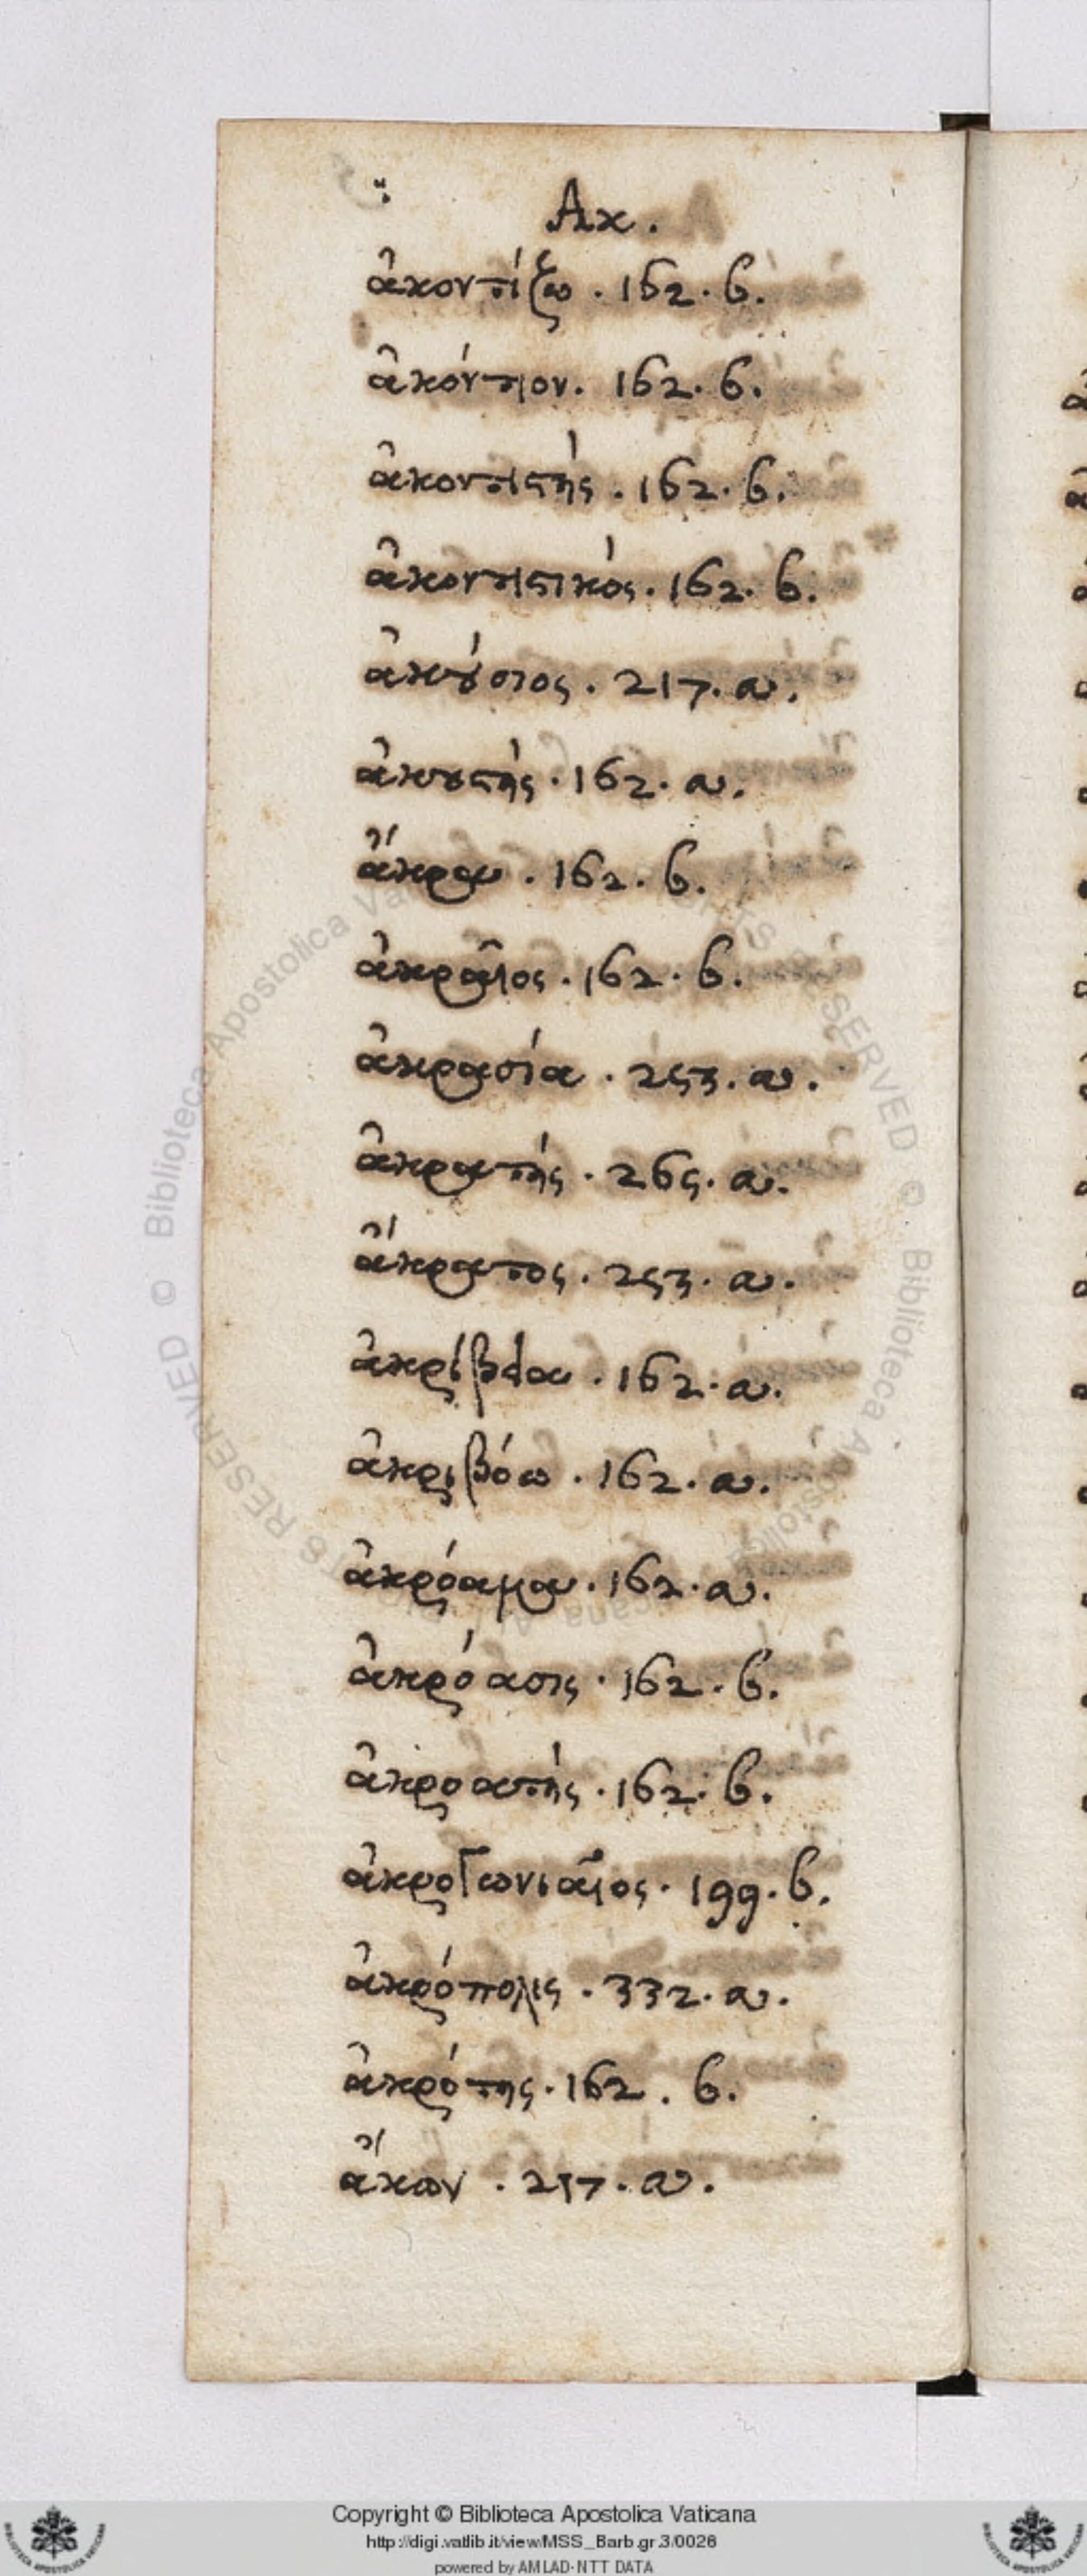 Ακ.
ἀκοντίζω . 162 . b.
ἀκόντιον . 162 . b.
ἀκοντιστής . 162 . b.
ἀκοντιστικός . 162 . b.
ἀκούσιος . 217 . a.
ἀκουστής . 162 . a.
ἄκρα . 162 . b.
ἀκραῖος . 162 . b.
ἀκρασία . 253 . a.
ἀκρατής . 265 . a.
ἄκρατος . 253 . a.
ἀκρίβεια . 162 . a.
ἀκριβόω . 162 . a.
ἀκρόαμα . 162 . a.
ἀκρόασις . 162 . b.
ἀκροατής . 162 . b.
ἀκρογωνιαῖος . 199 . b.
ἀκρόπολις . 332 . a.
ἀκρότης . 162 . b.
ἄκων . 217 . a.
© Biblioteca Apostolica Vaticana
Copyright © Biblioteca Apostolica Vaticana
http://digi.vatlib.it/view/MSS_Barb.gr.3/0026
powered by AMLAD-NTT DATA